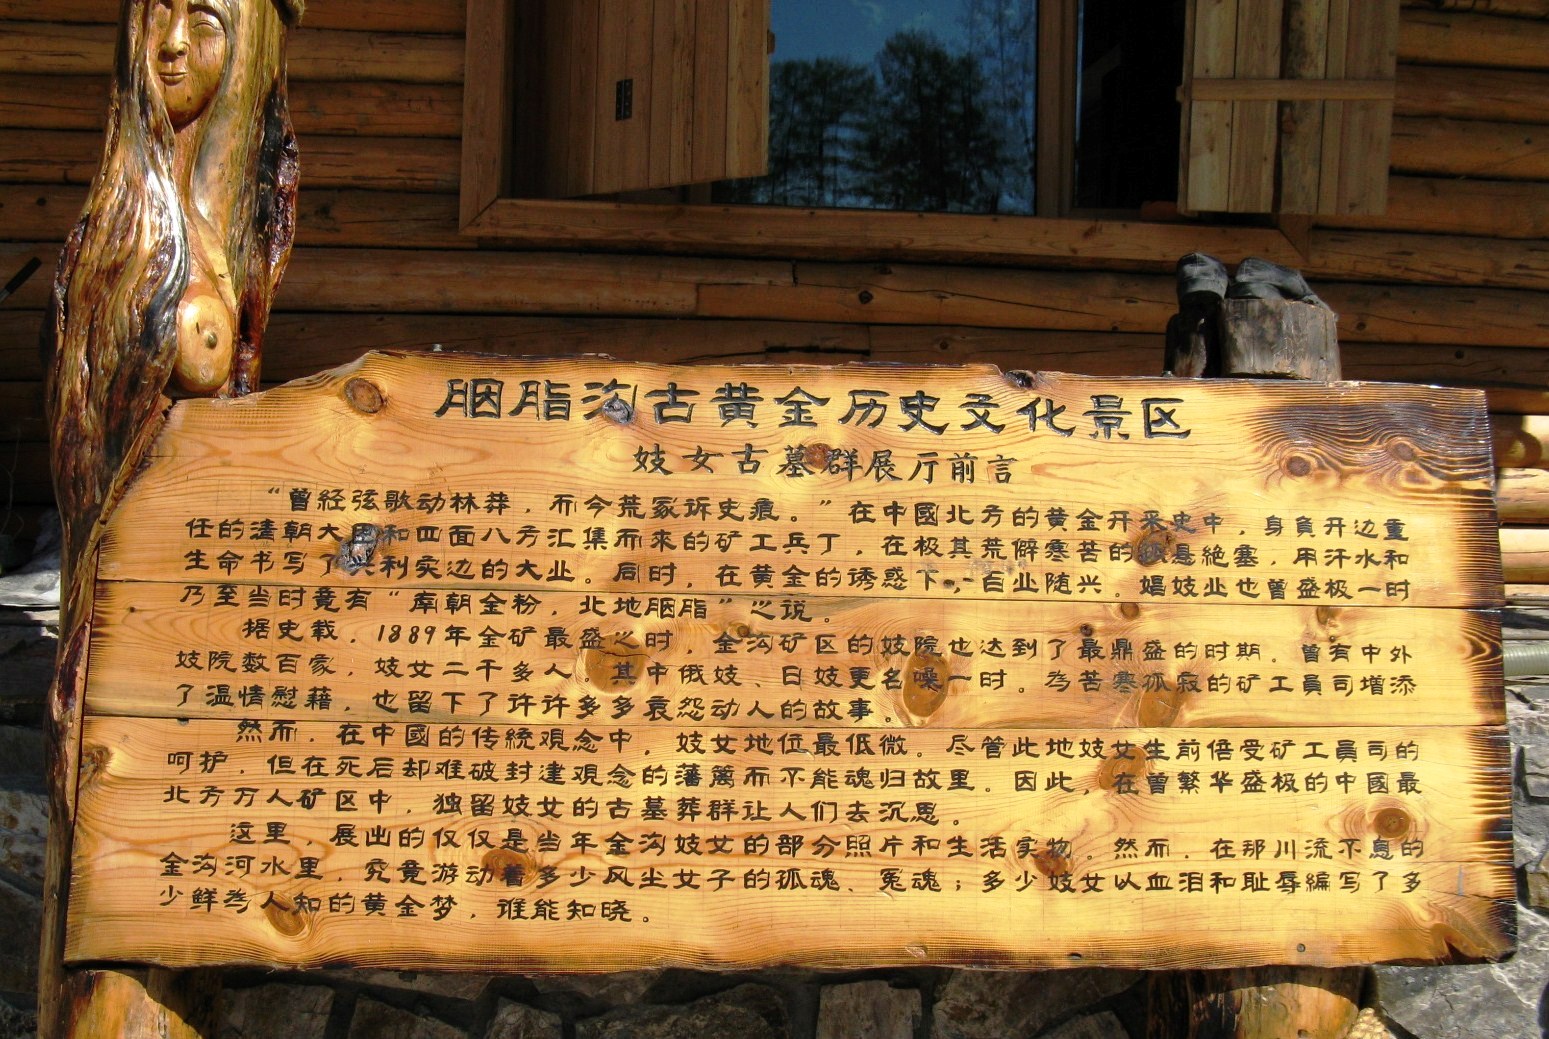 胭脂沟古黄金历史文化景区
妓女古墓群展厅前言
“曾经弦歌动林莽，而今荒冢诉史痕。”在中國北方的黄金开采史中，身負开边重
任的清朝大 和四面八方汇集而來的矿工兵丁，在极其荒僻寒苦的 悬絶塞，用汗水和
生命书写了 利实边的大业。同时，在黄金的诱惑下，百业随兴。娼妓业也曾盛极一时
乃至当时竟有“南朝金粉，北地胭脂”之说。
据史载，1889年金矿最盛之时，金沟矿区的妓院也达到了最鼎盛的时期，曾有中外
妓院数百家，妓女二千多人。其中俄妓、日妓更名噪一时。為苦寒孤寂的矿工員司增添
了温情慰藉，也留下了许许多多哀怨动人的故事。
然而，在中國的传統观念中，妓女地位最低微。尽管此地妓女生前倍受矿工員司的
呵护，但在死后却难破封建观念的藩篱而不能魂归故里。因此，在曾繁华盛极的中國最
北方万人矿区中，独留妓女的古墓葬群让人们去沉思。
这里，展出的仅仅是当年金沟妓女的部分照片和生活实物。然而，在那川流不息的
金沟河水里，究竟游动着多少风尘女子的孤魂、冤魂；多少妓女以血泪和耻辱編写了多
少鲜為人知的黄金梦，谁能知晓。